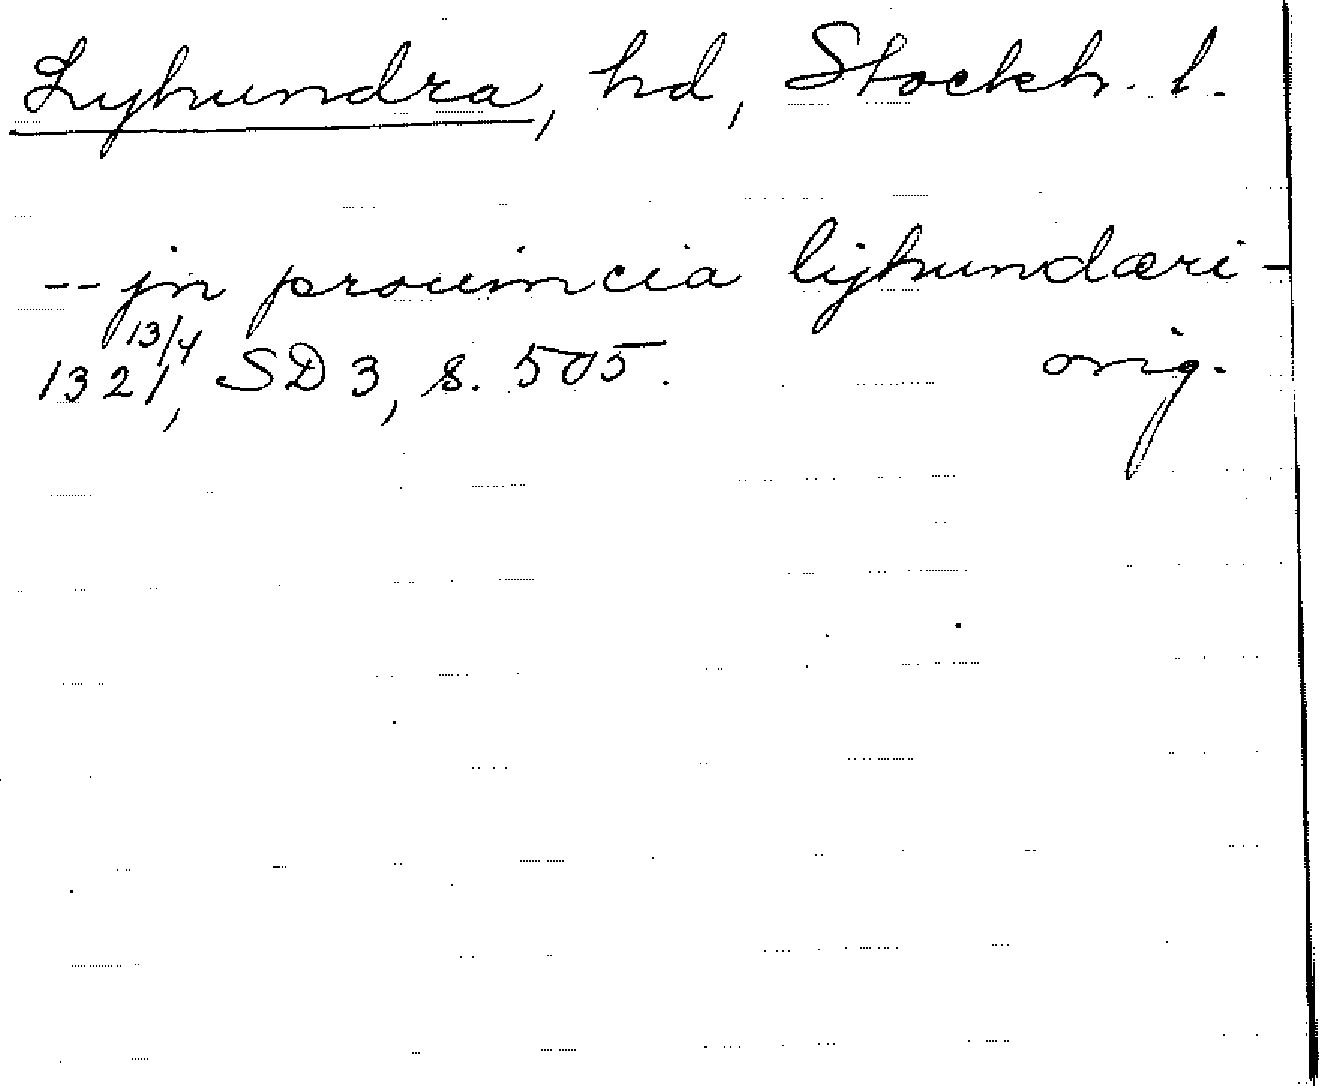 Lyhundra, hd, Stockh. l.
-- jn prouincia lijhundæri -
13/4
1321, SD 3, s. 505. orig.